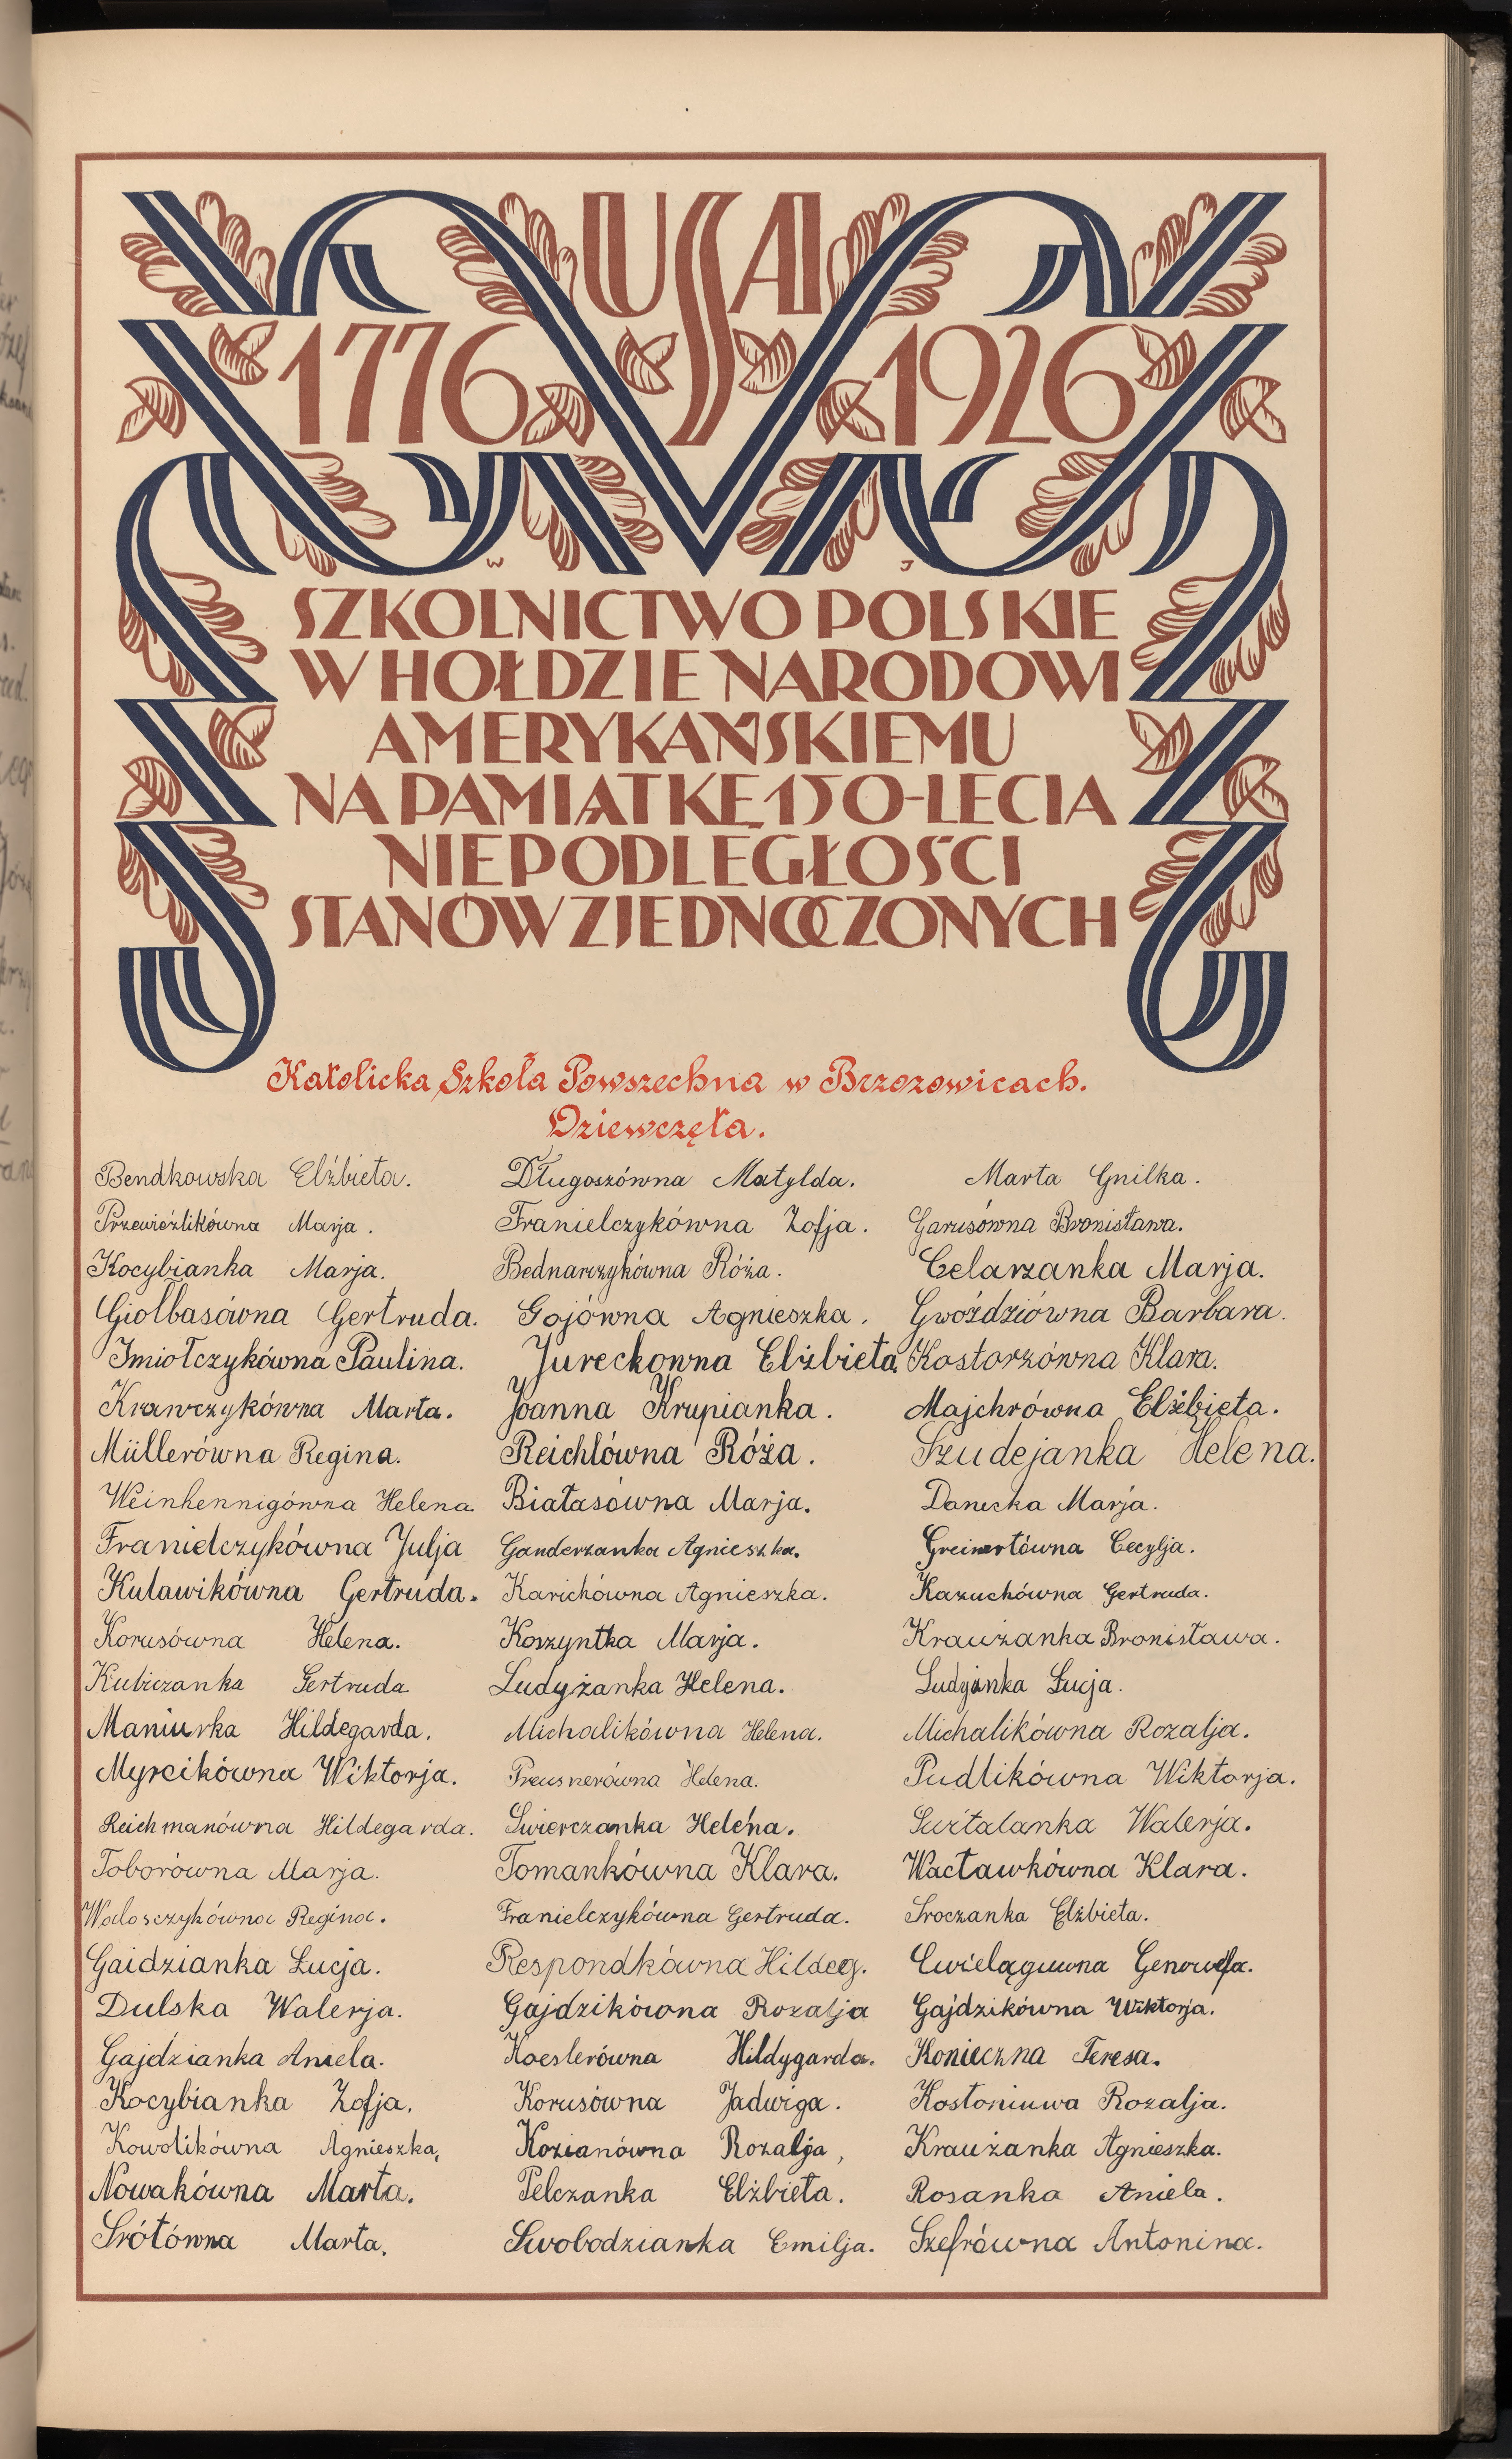 USA
1776 1926
W J
SZKOLNICTWO POLSKIE
W HOŁDZIE NARODOWI
AMERYKAŃSKIEMU
NA PAMIĄTKĘ 150-LECIA
NIEPODLEGŁOŚCI
STANÓW ZJEDNOCZONYCH
Katolicka Szkoła Powszechna w Brzozowicach.
Dziewczęta.
Bendkowska Elżbieta. Długoszówna Matylda. Marta Gnilka.
Przewieźlikówna Marja. Franielczykówna Zofja. Garusówna Bronisława.
Kocybianka Marja. Bednarczykówna Róża. Celarzanka Marja.
Giolbasówna Gertruda. Gojówna Agnieszka. Gwoździówna Barbara.
Imiołczykówna Paulina. Jureckowna Elżbieta. Kostorzówna Klara.
Krawczykówna Marta. Joanna Krupianka. Majchrówna Elżbieta.
Müllerówna Regina. Reichlówna Róża. Szudejanka Helena.
Weinhennigówna Helena. Białasówna Marja. Danecka Marja.
Franielczykówna Julja Ganderzanka Agnieszka. Greinertówna Cecylja.
Kulawikówna Gertruda. Karichówna Agnieszka. Kazuchówna Gertruda.
Korusówna Helena. Koszyntka Marja. Krauzanka Bronisława.
Kubiczanka Gertruda Ludyżanka Helena. Ludyżanka Łucja.
Maniurka Hildegarda. Michalikówna Helena. Michalikówna Rozalja.
Myrcikówna Wiktorja. Preusnerówna Helena. Pudlikówna Wiktorja.
Reichmanówna Hildegarda. Świerczanka Helena. Walerja.
Toborówna Marja. Tomankówna Klara. Wacławkówna Klara.
Wodosczykówna Regina. Franielczykówna Gertruda. Sroczanka Elżbieta.
Gaidzianka Łucja. Respondkówna Hildeg. Cwieląguwna Genowefa.
Dulska Walerja. Gajdzikówna Rozalja Gajdzikówna Wiktorja.
Gajdzianka Aniela. Koeslerówna Hildygarda. Konieczna Teresa.
Kocybianka Zofja. Korusówna Jadwiga. Kostoniuwa Rozalja.
Kowolikówna Agnieszka, Kozianówna Rozalja, Kraużanka Agnieszka.
Nowakówna Marta. Pelczanka Elżbieta. Rosanka Aniela.
Srótówna Marta. Swobodzianka Emilja. Szefrówna Antonina.